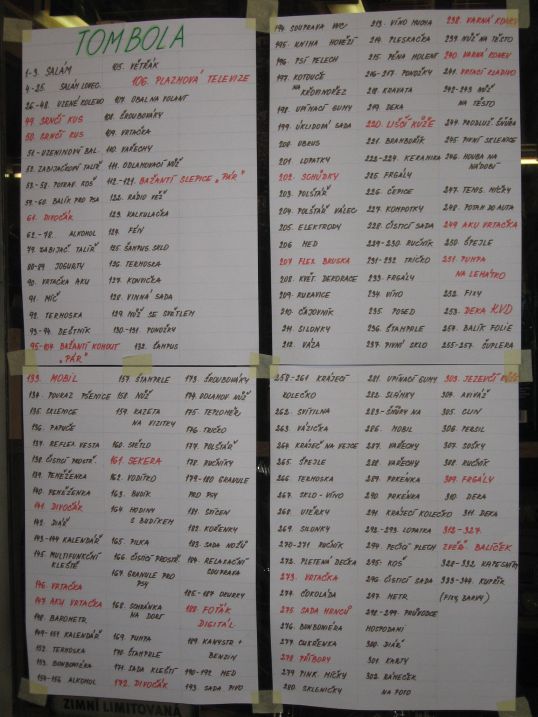 TOMBOLA
1-3. SALÁM
4-25. SALÁM LOVEC.
26-48. UZENÉ KOLENO
49. SRNČÍ KUS
50. SRNČÍ KUS
51.-UZENINOVÝ BAL.
52. ZABIJAČKOVÝ TALÍŘ
53.-58. POTRAV. KOŠ
59.-60. BALÍK PRO PSA
61. DIVOČÁK
62.-78. ALKOHOL
79. ZABIJAČ. TALÍŘ
80-89. JOGURTY
90. VRTAČKA AKU
91. MÍČ
92. TERMOSKA
93-94. DEŠTNÍK
95-104. BAŽANTÍ KOHOUT
"PÁR"
105. VĚTRÁK
106. PLAZMOVÁ TELEVIZE
107. OBAL NA VOLANT
108. ŠROUBOVÁKY
109. VRTAČKA
110. VAŘECHY
111. ODLAMOVACÍ NŮŽ
112.-121. BAŽANTÍ SLEPICE "PÁR"
122. RÁDIO VĚŽ
123. KALKULAČKA
124. FÉN
125. ŠAMPUS. SKLO
126. TERMOSKA
127. KONVIČKA
128. VINNÁ SADA
129. NŮŽ SE SVĚTLEM
130.-131. PONOŽKY
132. ŠAMPUS
133. MOBIL
134. POUKAZ PŠENICE
135. SKLENICE
136. PAPUČE
137. REFLEX. VESTA
138. ČISTÍCÍ PROSTŘ.
139. PENĚŽENKA
140. PENĚŽENKA
141. DIVOČÁK
142. DIÁŘ
143-144 KALENDÁŘ
145. MULTIFUNKČNÍ
KLEŠTĚ
146. VRTAČKA
147. AKU VRTAČKA
148. BAROMETR
149-151 KALENDÁŘ
152. TERMOSKA
153. BONBONIÉRA
154-156 ALKOHOL
157. ŠTAMPRLE
158. NŮŽ
159. KAZETA
NA VIZITKY
160. SVĚTLO
161. SEKERA
162. VODÍTKO
163. BUDÍK
164. HODINY
S BUDÍKEM
165. PILKA
166. ČISTÍCÍ PROSTŘ.
167. GRANULE PRO
PSY
168. SCHRÁNKA
NA DORT
169. PUMPA
170. ŠTAMPRLE
171. SADA KLEŠTÍ
172. DIVOČÁK
173. ŠROUBOVÁKY
174. ODLAMOV. NŮŽ
175. TEPLOMĚR
176. TRIČKO
177. POLŠTÁŘ
178. RUČNÍKY
179-180 GRANULE
PRO PSY
181. SPÍCEN
182. KOŘENKY
183. SADA NOŽŮ
184. RELAXAČNÍ
SOUPRAVA
185-187 OKURKY
188. FOŤÁK
DIGITÁL
189. KANYSTR +
BENZIN
190-192 MED
193. SADA PIVO
194. SOUPRAVA WC
195. KNIHA HOVĚZÍ
196. PSÍ PELECH
197. KOTOUČE
NA KŘOVINOŘEZ
198. UPÍNACÍ GUMY
199. ÚKLIDOVÁ SADA
200. UBRUS
201. LOPATKY
202. SCHŮDKY
203. POLŠTÁŘ
204. POLŠTÁŘ VÁLEC
205. ELEKTRODY
206. MED
207. FLEX. BRUSKA
208. KVĚT. DEKORACE
209. RUKAVICE
210. ČAJOVNÍK
211. SILONKY
212. VÁZA
213. VÍNO MUCHA
214. PLESKAČKA
215. PĚNA MOLENT
216-217. PONOŽKY
218. KRAVATA
219. DEKA
220. LIŠČÍ KŮŽE
221. BRAMBOŘÍK
222-224. KERAMIKA
225. FRGÁLY
226. ČEPICE
227. KOMPOTKY
228. ČISTÍCÍ SADA
229-230. RUČNÍK
231-232. TRIČKO
233. FRGÁLY
234. VÍNO
235. POSED
236. ŠTAMPRLE
237. PIVNÍ SKLO
238. VARNÁ KONEV
239. NŮŽ NA TĚSTO
240. VARNÁ KONEV
241. VRTACÍ KLADIVO
242-243 NŮŽ
NA TĚSTO
244. PRODLUŽ. ŠŇŮRA
245. PIVNÍ SKLENICE
246. HOUBA NA
NÁDOBÍ
247. TENIS. MÍČKY
248. POTAH DO AUTA
249 AKU VRTAČKA
250. ŠPEJLE
251. PUMPA
NA LEHÁTKO
252. FIXY
253. DEKA KVD
254. BALÍK FOLIE
255-257. ŠUPLERA
258-261 KRÁJECÍ
KOLEČKO
262. SVÍTILNA
263. VÁZIČKA
264. KRÁJEČ NA VEJCE
265. ŠPEJLE
266. TERMOSKA
267. SKLO - VÍNO
268. UTĚRKY
269. SILONKY
270-271 RUČNÍK
272. PLETENÁ DEČKA
273. VRTAČKA
274. ČOKOLÁDA
275. SADA HRNCŮ
276. BONBONIÉRA
277. CUKŘENKA
278. PŘÍBORY
279. PINK MÍČKY
280. SKLENIČKY
281. UPÍNACÍ GUMY
282. SLÁNKY
283-ŠŇŮRY NA
286. MOBIL
287. VAŘECHY
288. VAŘECHY
289. PRKENKA
290. PRKENKA
291. KRÁJECÍ KOLEČKO
292-293. LOPATKA
294. PEČÍCÍ PLECH
295. KOŠ
296. ČISTÍCÍ SADA
297. METR
298-299. PRŮVODCE
HOSPODAMI
300. DIÁŘ
301. KARTY
302. RÁMEČEK
NA FOTO
303. JEZEVČÍ KŮŽE
304. AVIVÁŽ
305. CLIN
306. PERSIL
307. SOŠKY
308. RUČNÍK
309. FRGÁLY
310. DEKA
311. DEKA
312-327.
ZVĚŘ. BALÍČEK
328-332 KAPESNÍKY
333-344. KUFŘÍK
(FIXY, BARVY)
ZIMNÍ LIMITOVANÁ